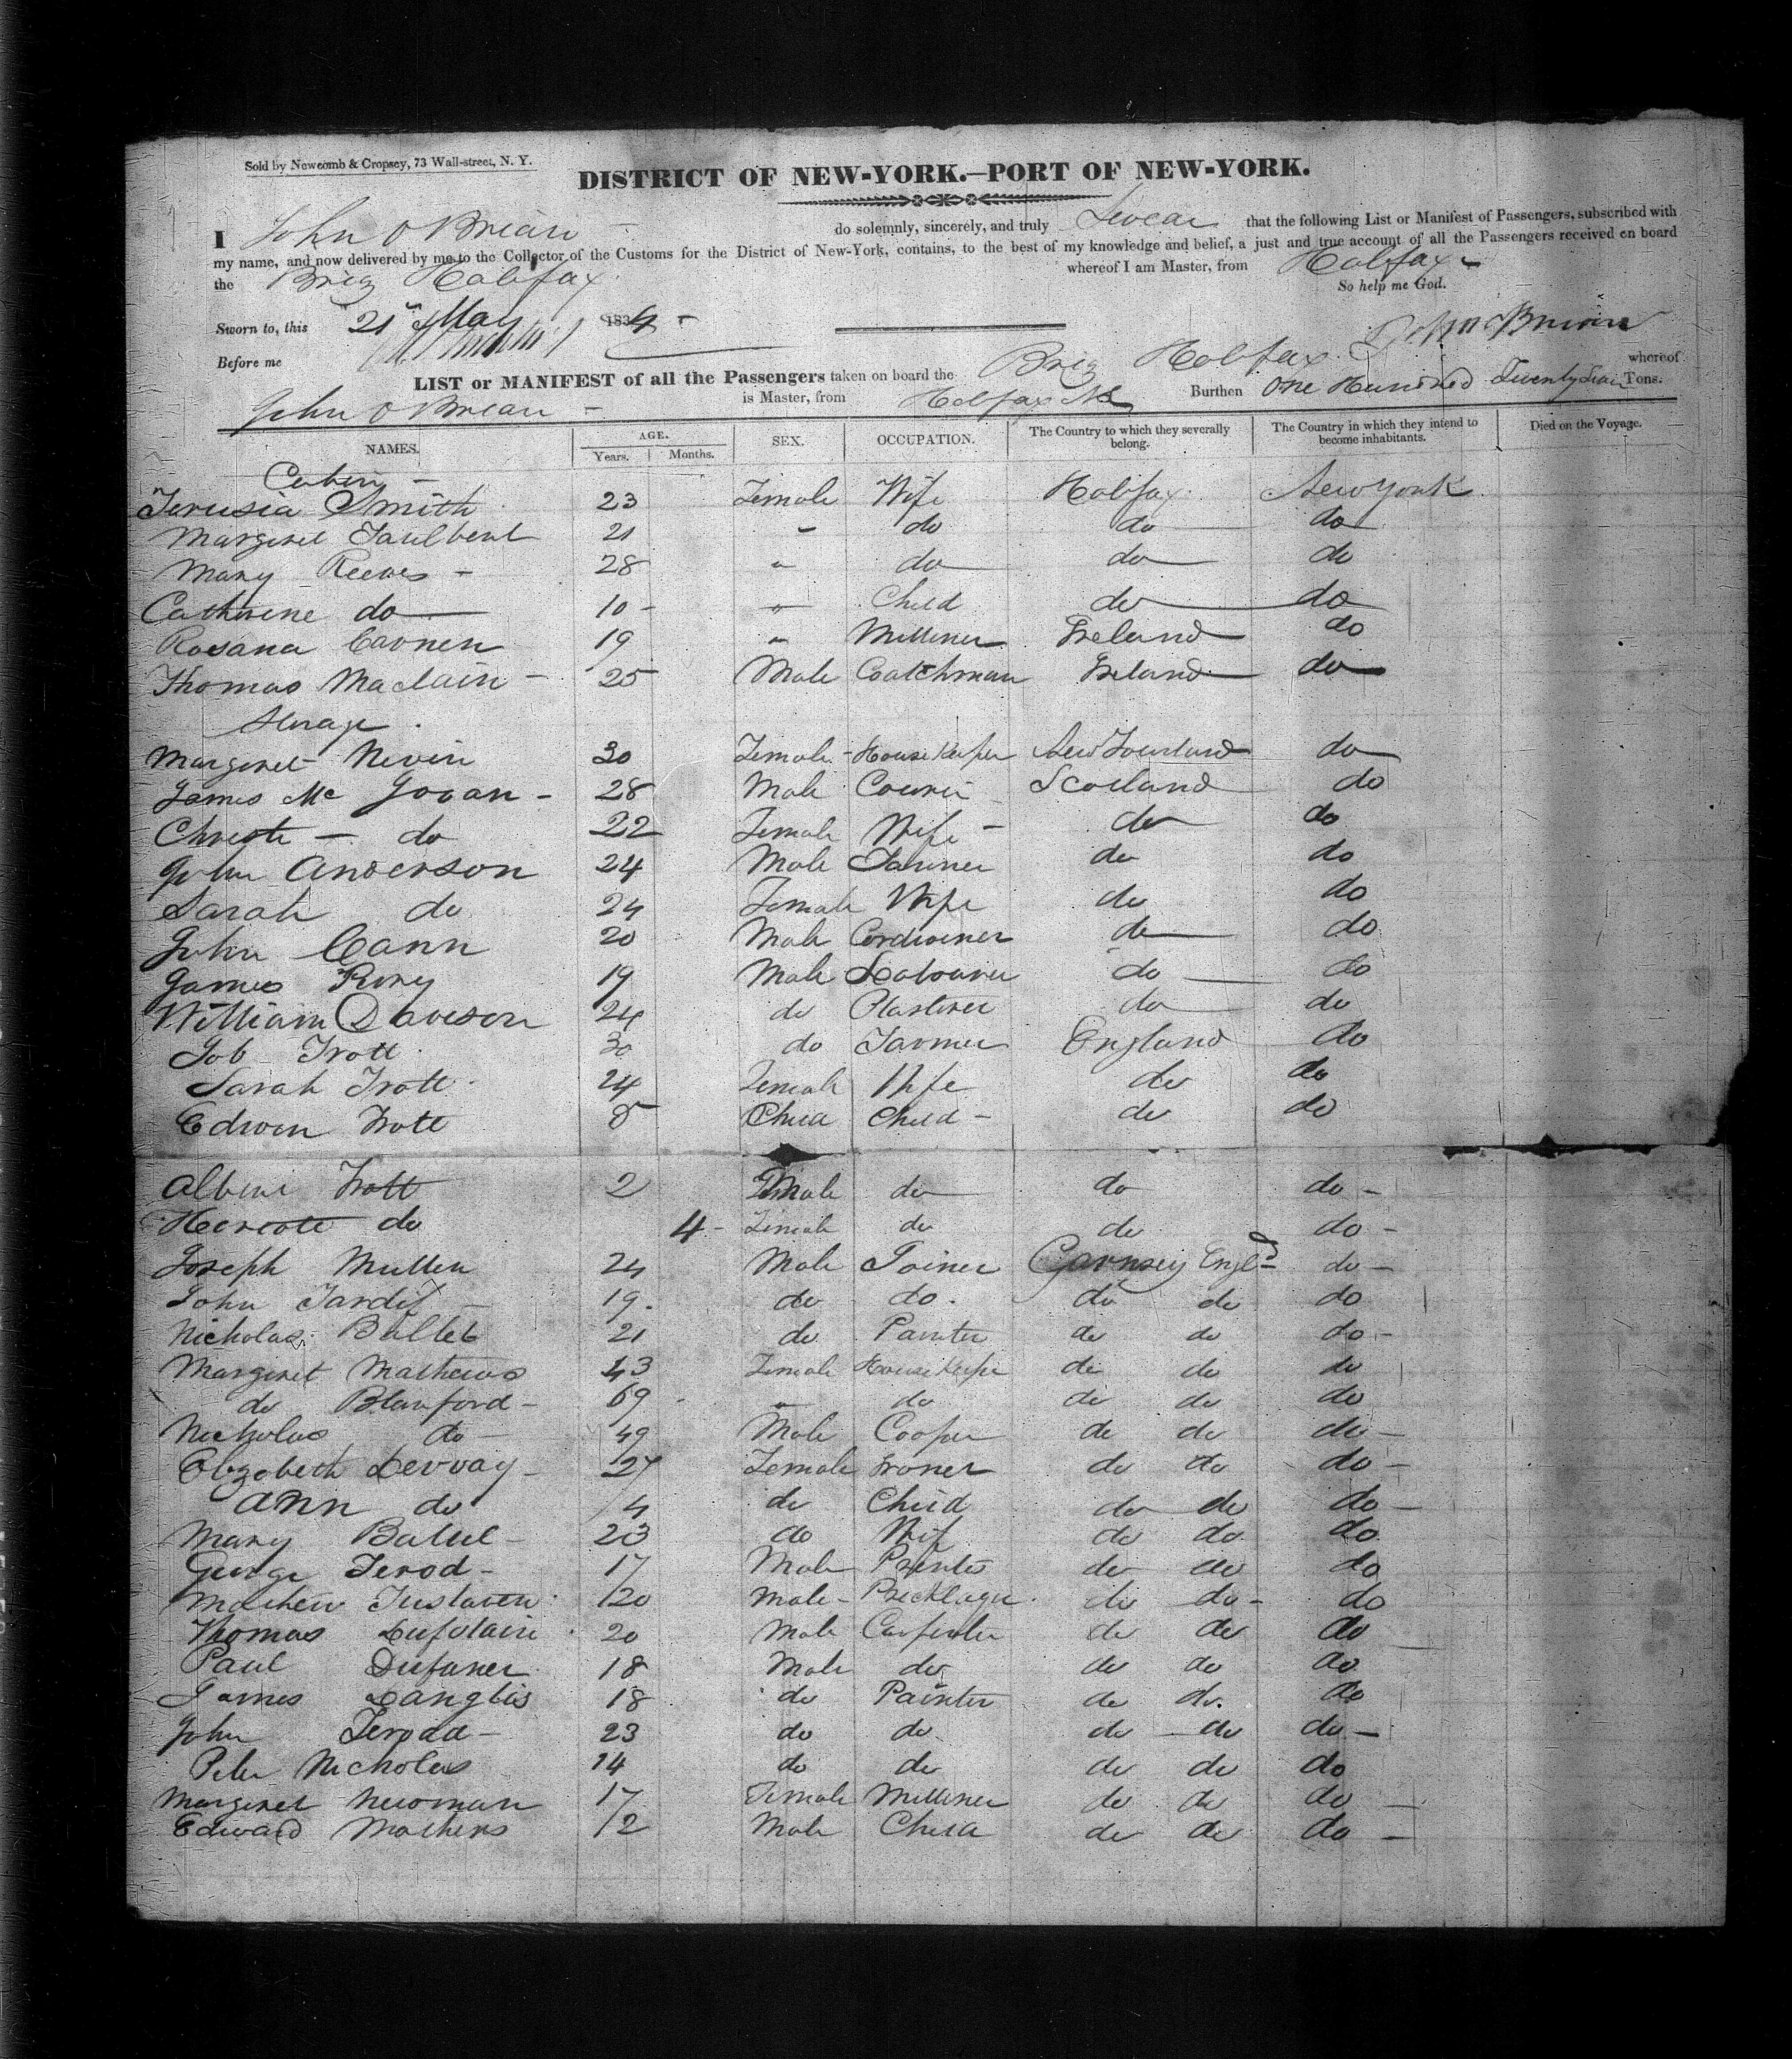 Sold by Newcomb & Cropsey, 73 Wall-street, N. Y.
DISTRICT OF NEW-YORK.—PORT OF NEW-YORK.
I John O Brian do solemnly, sincerely, and truly Swear that the following List or Manifest of Passengers, subscribed with
my name, and now delivered by me to the Collector of the Customs for the District of New-York, contains, to the best of my knowledge and belief, a just and true account of all the Passengers received on board
the Brig Halifax whereof I am Master, from Halifax
So help me God.
Sworn to, this 21st May 1834
Before me
LIST or MANIFEST of all the Passengers taken on board the Brig Halifax whereof
John O Brian is Master, from Halifax NS Burthen One Hundred Twenty Tons.
NAMES. AGE. Years. Months. SEX. OCCUPATION. The Country to which they severally belong. The Country in which they intend to become inhabitants. Died on the Voyage.
Cabin
Jerusia Smith 23 Female Wife Halifax New York
Margret Faulbent 21 " do do do
Mary Reeves 28 " do do do
Cathrine do 10 " Child do do
Rosana Cavnen 19 " Milliner Ireland do
Thomas Maclain 25 Male Coatchman Ireland do
Margret Nevin 30 Female House Keeper do
James Mc Govan 28 Male Scotland do
Christe do 22 Female Wife do do
John Anderson 24 Male do do
Sarah do 24 Female Wife do do
John Cann 20 Male Cordwiner do do
James Rory 19 Male Labourer do do
William Davison 24 do Plasterer do do
Job Trott 30 do Farmer England do
Sarah Trott 24 Female Wife do do
Edwin Trott 8 Child Child do do
Trott 2 Male do do do
do 4 Female do do do
Joseph Mullen 24 Male Joiner Garnsey Engld do
John Tardif 19 do do do do do
Nicholas Ballet 21 do Painter do do do
Margret Mathews 43 Female House Keeper do do do
do Blanford 69 " do do do do
Nicholas do 49 Male Cooper do do do
Elizebeth Levvay 27 Female do do do
Ann do 4 do Child do do do
Mary 23 do Wife do do do
George Terod 17 Male Printer do do do
Mathew 20 male do do do
Thomas 20 Male Carpenter do do do
Paul 18 Male do do do do
James Langlis 18 do Painter do do do
John 23 do do do do do
Peter Nicholas 14 do do do do do
Margret Newman 17 Female Milliner do do do
Edward Mathews 12 Male Child do do do